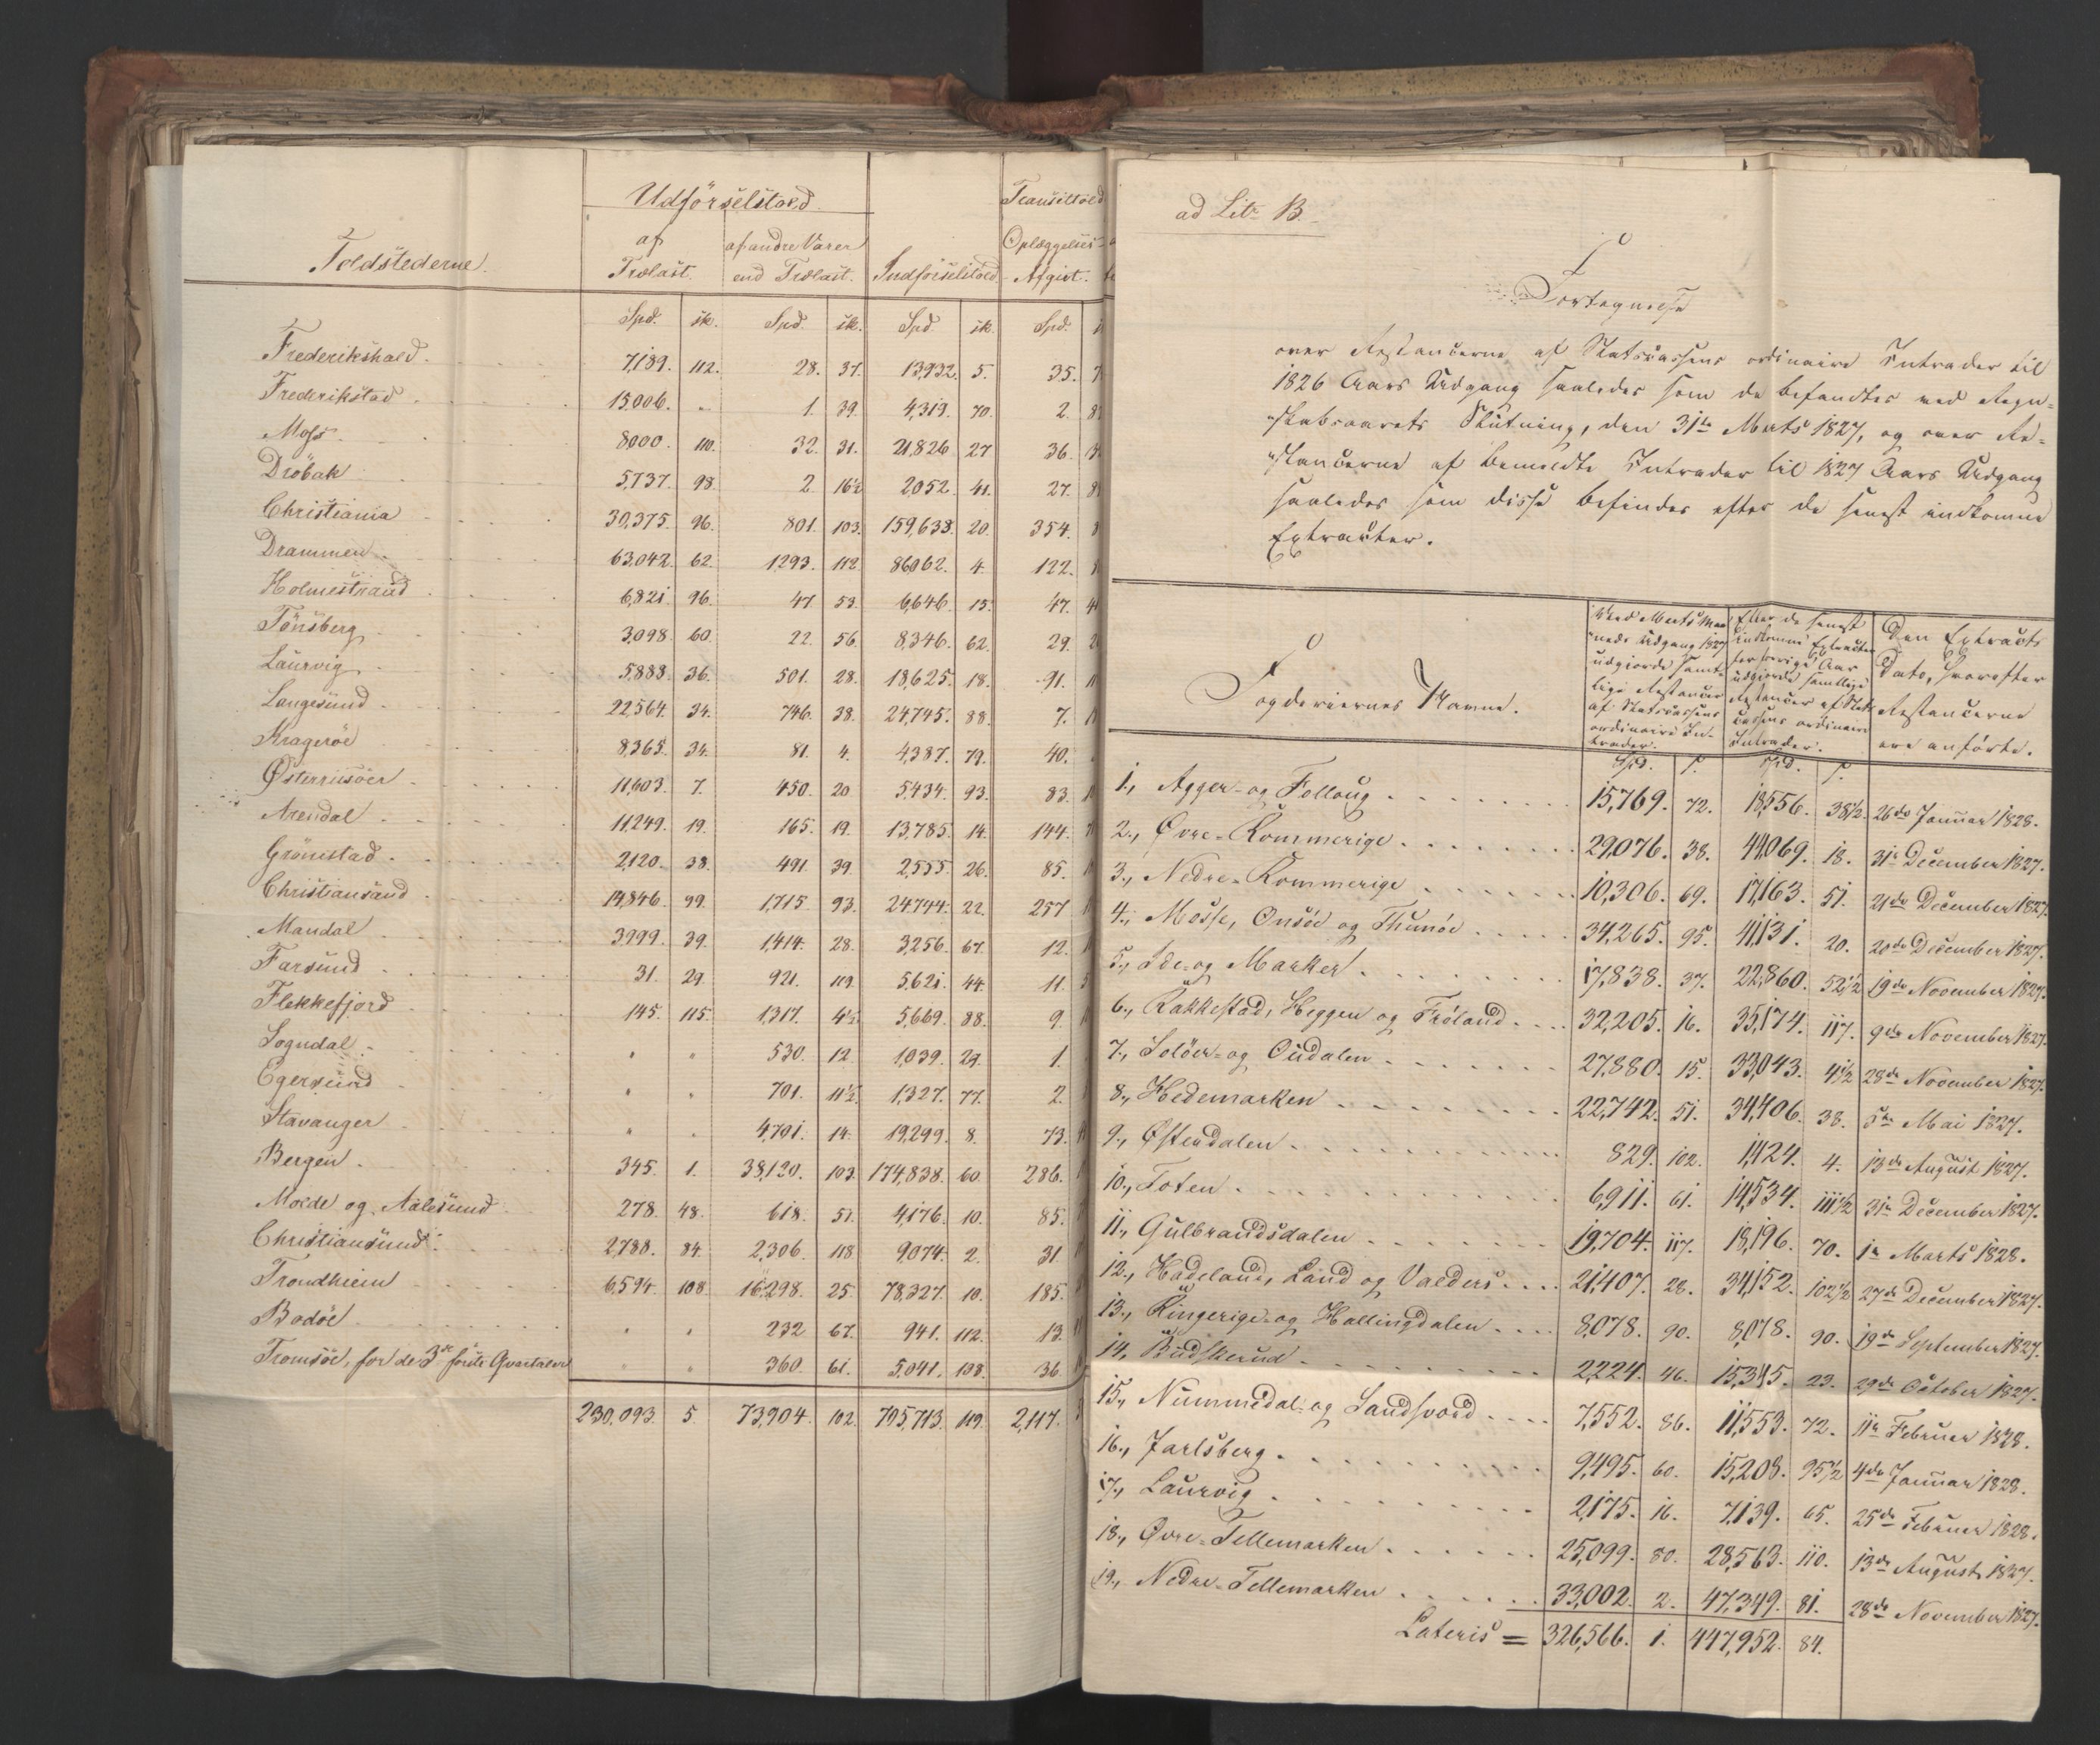 Toldstederne. Udförselstold Indförselstold. Transittold
af Trælast. af andre Varer end Trælast. Oplæggelses- Afgivt.
Spd. sk. Spd. sk. Spd. sk. Spd.
Frederikshald. 7,189. 112. 28. 37. 13,932. 5. 35.
Frederikstad 15,006. " 1. 39. 4,319. 70. 2.
Moss. 8,000. 110. 32. 31. 21,826. 27 36.
Dröbak 5,737. 98. 2. 16½ 2052. 41. 27.
Christiania 39,375. 96. 801. 103. 159,638. 20. 354.
Drammen. 63,042. 62. 1,293. 112. 86062. 4. 122.
Holmestrand 6,821. 96. 47. 53. 6,646. 15. 47.
Tönsberg 3,098. 60. 22. 56. 8,346. 62. 29.
Laurvig 5,888. 36. 501. 28. 18,625. 18. 91.
Langesund 22,564. 34. 746. 38. 24,745. 88. 7.
Krageröe 8,365. 34. 81. 4. 4,387. 79. 40.
Østerriisöer 11,603. 7. 450. 20. 5,434. 93. 83.
Arendal 11,249. 19. 165. 19. 13,785. 14. 144.
Grömstad. 2,120. 38. 491. 39. 2,555. 26. 85.
Christiansand 14,846. 99. 1,715. 93. 24,744. 22. 257
Mandal 3,999. 39. 1,414. 28. 3,256. 67. 12.
Farsund 31. 29. 921. 119. 5,621. 44. 11.
Flekkefjord 145. 115. 1,317. 4½ 5,669. 88. 9.
Sogndal " " 530. 12. 1,039. 29. 1.
Egersund " " 701. 11½ 1,327. 77. 2.
Stavanger " " 4,701. 14. 19,299. 8. 73.
Bergen. 345. 1. 38,120. 103. 174,838. 60. 286.
Molde og Aalesund 278. 48. 618. 57. 4,176. 10. 85.
Christiansund. 2,788. 84. 2,306. 118 9,074. 2. 31
Trondhiem 6,594. 108. 16,298. 25. 78,327. 10. 185.
Bodöe " " 232. 67. 941. 112. 13.
Tromsöe, for de 3de förste Qvartaler " " 360. 61. 5,041. 108. 36
230,093. 5. 73,904. 102. 795,713. 119. 2,117.
ad Litr B.
Fortegnelse
over Restancerne af Statscassens ordinaire Intrader til
1826 Aars Udgang saaledes som de befandtes ved Regn=
"skabsaarets Slutning, den 31te Marts 1827, og over Re=
"stancerne af bemeldte Intrader til 1827 Aars Udgang
saaledes som disse befindes efter de senest indkomne
Extracter.
Fogderiernes Navne.
Ved Marts Maa
"neds Udgang 1827
udgjorde samt-
lige Restancer
af Statscassens
ordinaire In-
trader.
Efter de senest
indkomne Extracter
for forrige Aar
udgjorde samtlige
Restancer af Stats
cassens ordinaire
Intrader.
Den Extracts
Dato, hvorefter
Restancerne
ere anförte.
Spd. s. Spd. s.
1., Agger- og Folloug 15,769. 72. 18,556. 38½. 26de Januar 1828.
2., Øvre-Rommerige 29,076. 38. 44,069. 18. 31te December 1827.
3., Nedre-Rommerige 10,306. 69. 17,163. 51. 21de December 1827.
4., Mosse, Onsöe og Thunöe 34,265. 95. 41,131. 20. 20de December 1827.
5., Ide- og Marker 17,838. 37. 22,860. 52½ 19de November 1827.
6., Rakkestad, Heggen og Fröland 32,205. 16. 35,174. 117. 9de November 1827.
7., Solöer- og Oudalen 27,880. 15. 33,043. 4½ 28de November 1827.
8., Hedemarken 22,742. 51. 34,406. 38. 5te Mai 1827.
9., Østerdalen 829. 102. 1,424. 4. 13de August 1827.
10., Toten 6,911. 61. 14,534. 111½ 31te December 1827.
11., Gulbrandsdalen 19,704. 117. 18,196. 70. 1te Marts 1828.
12., Hadeland, Land og Valders 21,407. 28. 34,152. 102½ 27de December 1827.
13., Ringerige- og Hallingdalen 8,078. 90. 8,078. 90. 19de September 1827.
14., Budskerud 2,224. 46. 15,345. 23. 29de October 1827.
15., Nummedal- og Sandsvord 7,552. 86. 11,553. 72. 11te Februar 1828.
16., Jarlsberg 9,495. 60. 15,208. 95½ 4de Januar 1828.
17., Laurvig 2,175. 16. 7,139. 65. 25de Februar 1828.
18., Øvre-Tellemarken 25,099. 80. 28,563. 110. 13de August 1827.
19., Nedre-Tellemarken 33,002. 2. 47,349. 81. 28de November 1827.
Lateris = 326,566. 1. 447,952. 84.